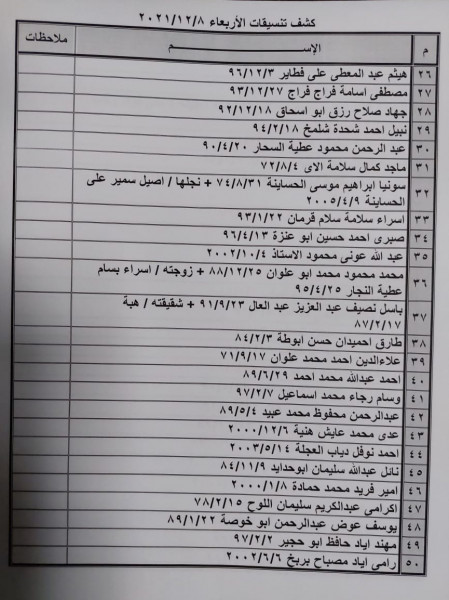 كشف تنسيقات الأربعاء ٢٠٢١/١٢/٨
م الإســـــــم ملاحظات
٢٦ هيثم عبد المعطى على فطاير ٩٦/١٢/٣
٢٧ مصطفى اسامة فراج فراج ٩٣/١٢/٢٧
٢٨ جهاد صلاح رزق ابو اسحاق ٩٢/١٢/١٨
٢٩ نبيل احمد شحدة شلمخ ٩٤/٢/١٨
٣٠ عبد الرحمن محمود عطية السحار ٩٠/٤/٢٠
٣١ ماجد كمال سلامة الاى ٧٢/٨/٤
٣٢ سونيا ابراهيم موسى الحساينة ٧٤/٨/٣١ + نجلها / اصيل سمير على
الحساينة ٢٠٠٥/٤/٩
٣٣ اسراء سلامة سلام قرمان ٩٣/١/٢٢
٣٤ صبرى احمد حسين ابو عنزة ٩٦/٤/١٣
٣٥ عبد الله عونى محمود الاستاذ ٢٠٠٢/١٠/٤
٣٦ محمد محمود محمد ابو علوان ٨٨/١٢/٢٥ + زوجته / اسراء بسام
عطية النجار ٩٥/٤/٢٥
٣٧ باسل نصيف عبد العزيز عبد العال ٩١/٩/٢٣ + شقيقته / هبة
٨٧/٢/١٧
٣٨ طارق احميدان حسن ابوطة ٨٤/٢/٣
٣٩ علاءالدين احمد محمد علوان ٧١/٩/١٧
٤٠ احمد عبدالله محمد احمد ٨٩/٦/٢٩
٤١ وسام رجاء محمد اسماعيل ٩٧/٢/٧
٤٢ عبدالرحمن محفوظ محمد عبيد ٨٩/٥/٤
٤٣ عدى محمد عايش هنية ٢٠٠٠/١٢/٦
٤٤ احمد نوفل دياب العجلة ٢٠٠٣/٥/١٤
٤٥ نائل عبدالله سليمان ابوحدايد ٨٤/١١/٩
٤٦ امير فريد محمد حمادة ٢٠٠٠/١/٨
٤٧ اكرامى عبدالكريم سليمان اللوح ٧٨/٢/١٥
٤٨ يوسف عوض عبدالرحمن ابو خوصة ٨٩/١/٢٢
٤٩ مهند اياد حافظ ابو حجير ٩٧/٢/٢
٥٠ رامى اياد مصباح بربخ ٢٠٠٢/٦/٦